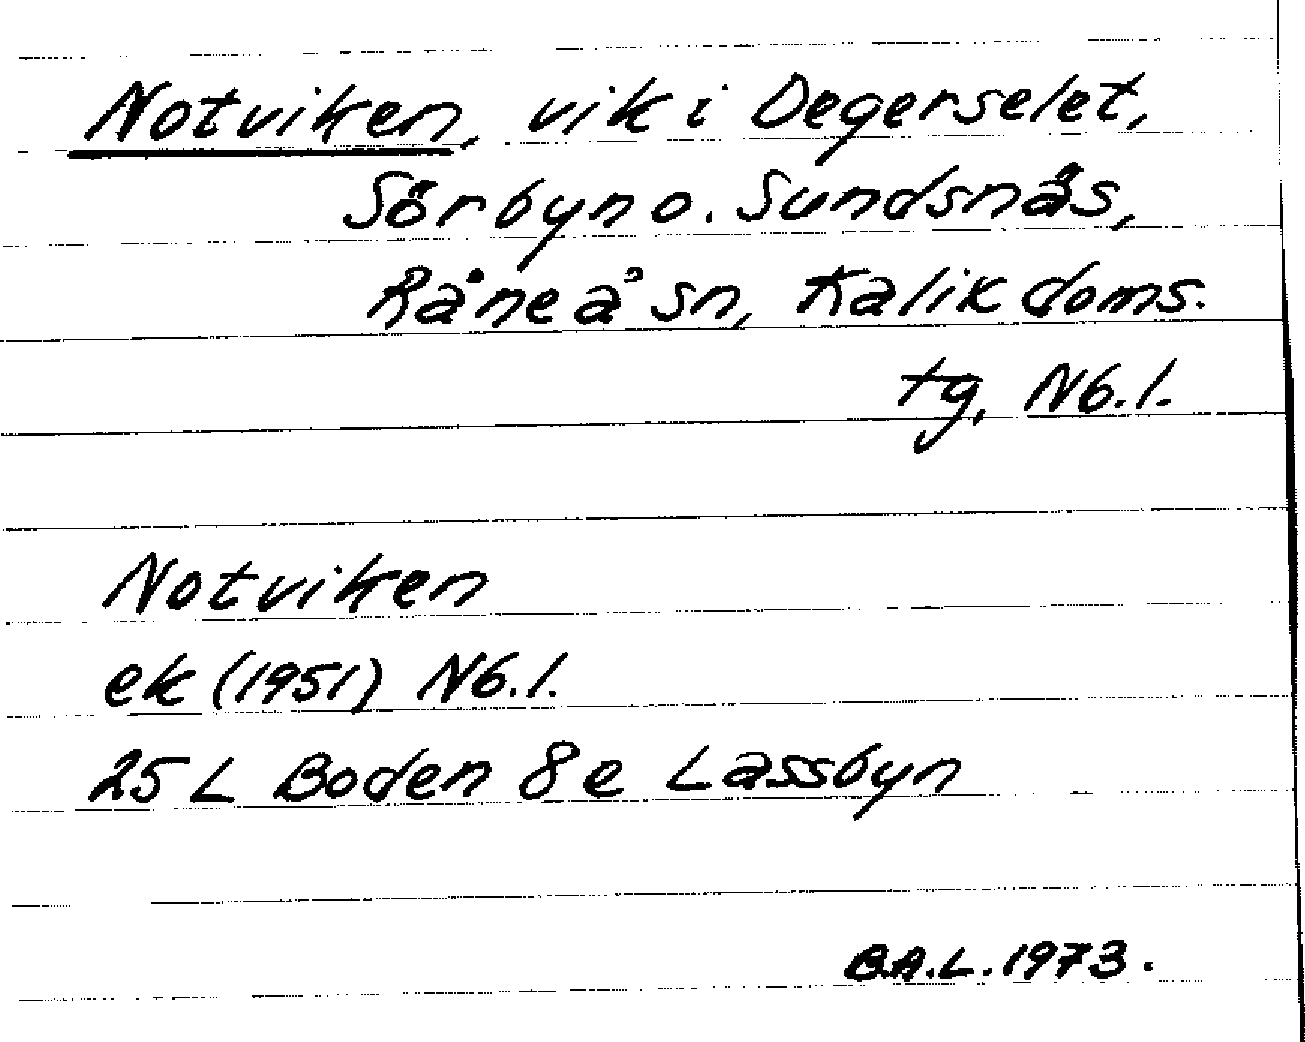 Notviken, vik i Degerselet,
Sörbyn o. Sundsnäs,
Råneå sn, Kalix doms.
tg, Nb.l.
Notviken
ek (1951) Nb.l.
25 L Boden 8e Lassbyn
B.A.L. 1973.